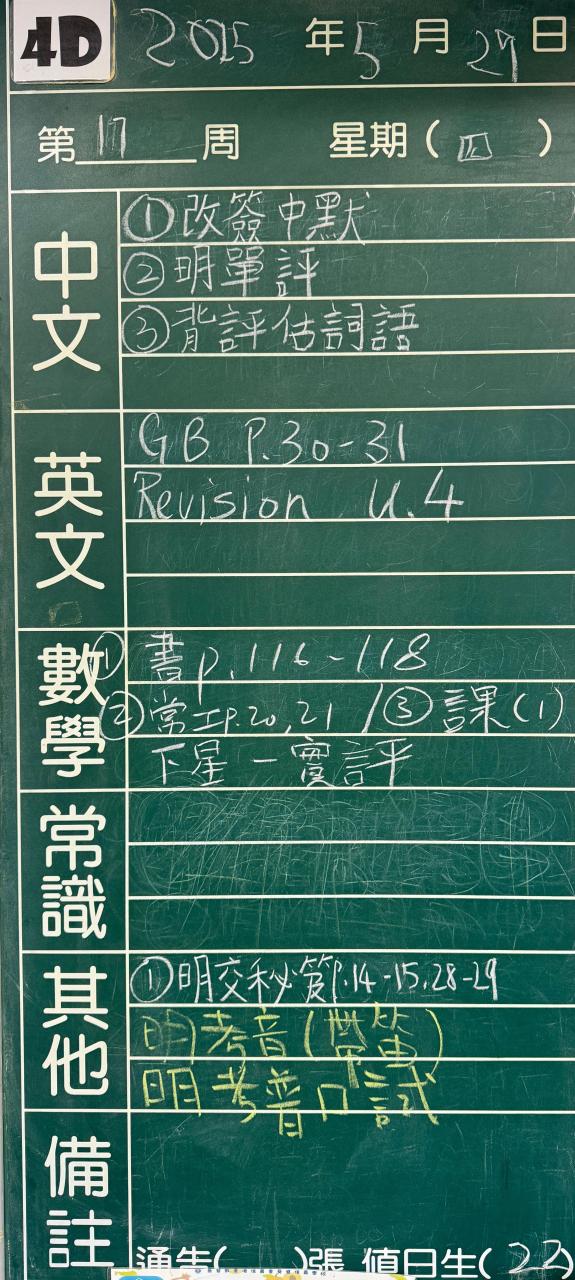 4D 2025 年 5 月 29 日
第 17 周 星期( 四 )
中文
①改簽中默
②明單評
③背評估詞語
英文
GB P.30-31
Revision U.4
數學
① 書p.116-118
②常工p.20,21 /③課(1)
下星一實評
常識
其他
①明交秘笈P.14-15,28-29
明考音(帶笛)
明考普口試
備註
通告( )張 值日生(22)